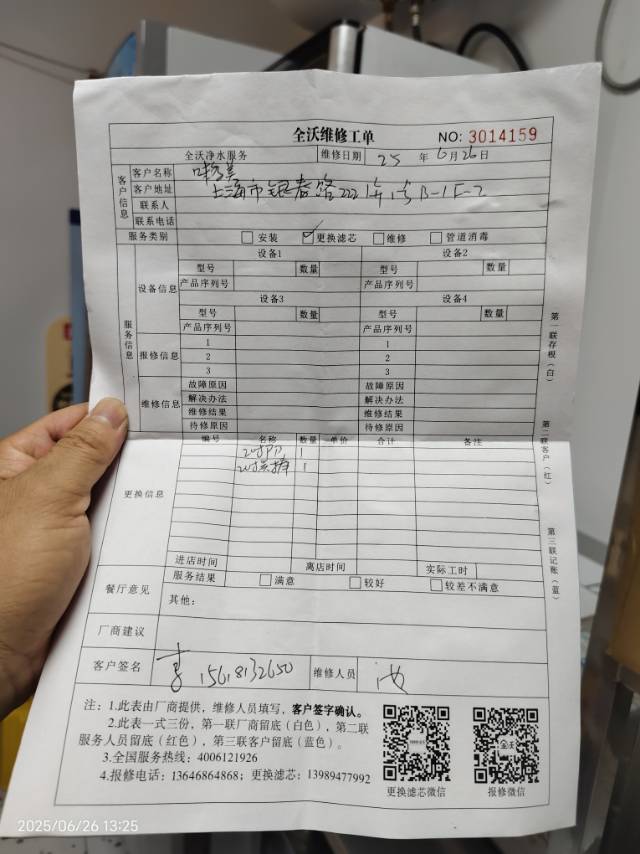 全沃维修工单 NO: 3014159
全沃净水服务 维修日期 25 年 6 月 26 日
客户信息
客户名称
客户地址 上海市银春路2221弄1号B-1F-2
联系人
联系电话
服务类别 安装 ✓ 更换滤芯 维修 管道消毒
服务信息
设备信息
设备1 设备2
型号 数量 型号 数量
产品序列号 产品序列号
设备3 设备4
型号 数量 型号 数量
产品序列号 产品序列号
报修信息
1 1
2 2
3 3
维修信息
故障原因 故障原因
解决办法 解决办法
维修结果 维修结果
待修原因 待修原因
更换信息
编号 名称 数量 单价 合计 备注
20寸PP 1
20寸 1
进店时间 离店时间 实际工时
餐厅意见
服务结果 满意 较好 较差不满意
其他：
厂商建议
客户签名 李 15618132650 维修人员
注：1.此表由厂商提供，维修人员填写，客户签字确认。
2.此表一式三份，第一联厂商留底（白色），第二联
服务人员留底（红色），第三联客户留底（蓝色）。
3.全国服务热线：4006121926
4.报修电话：13646864868；更换滤芯：13989477992
更换滤芯微信 报修微信
第一联存根（白）
第二联客户（红）
第三联记账（蓝）
2025/06/26 13:25